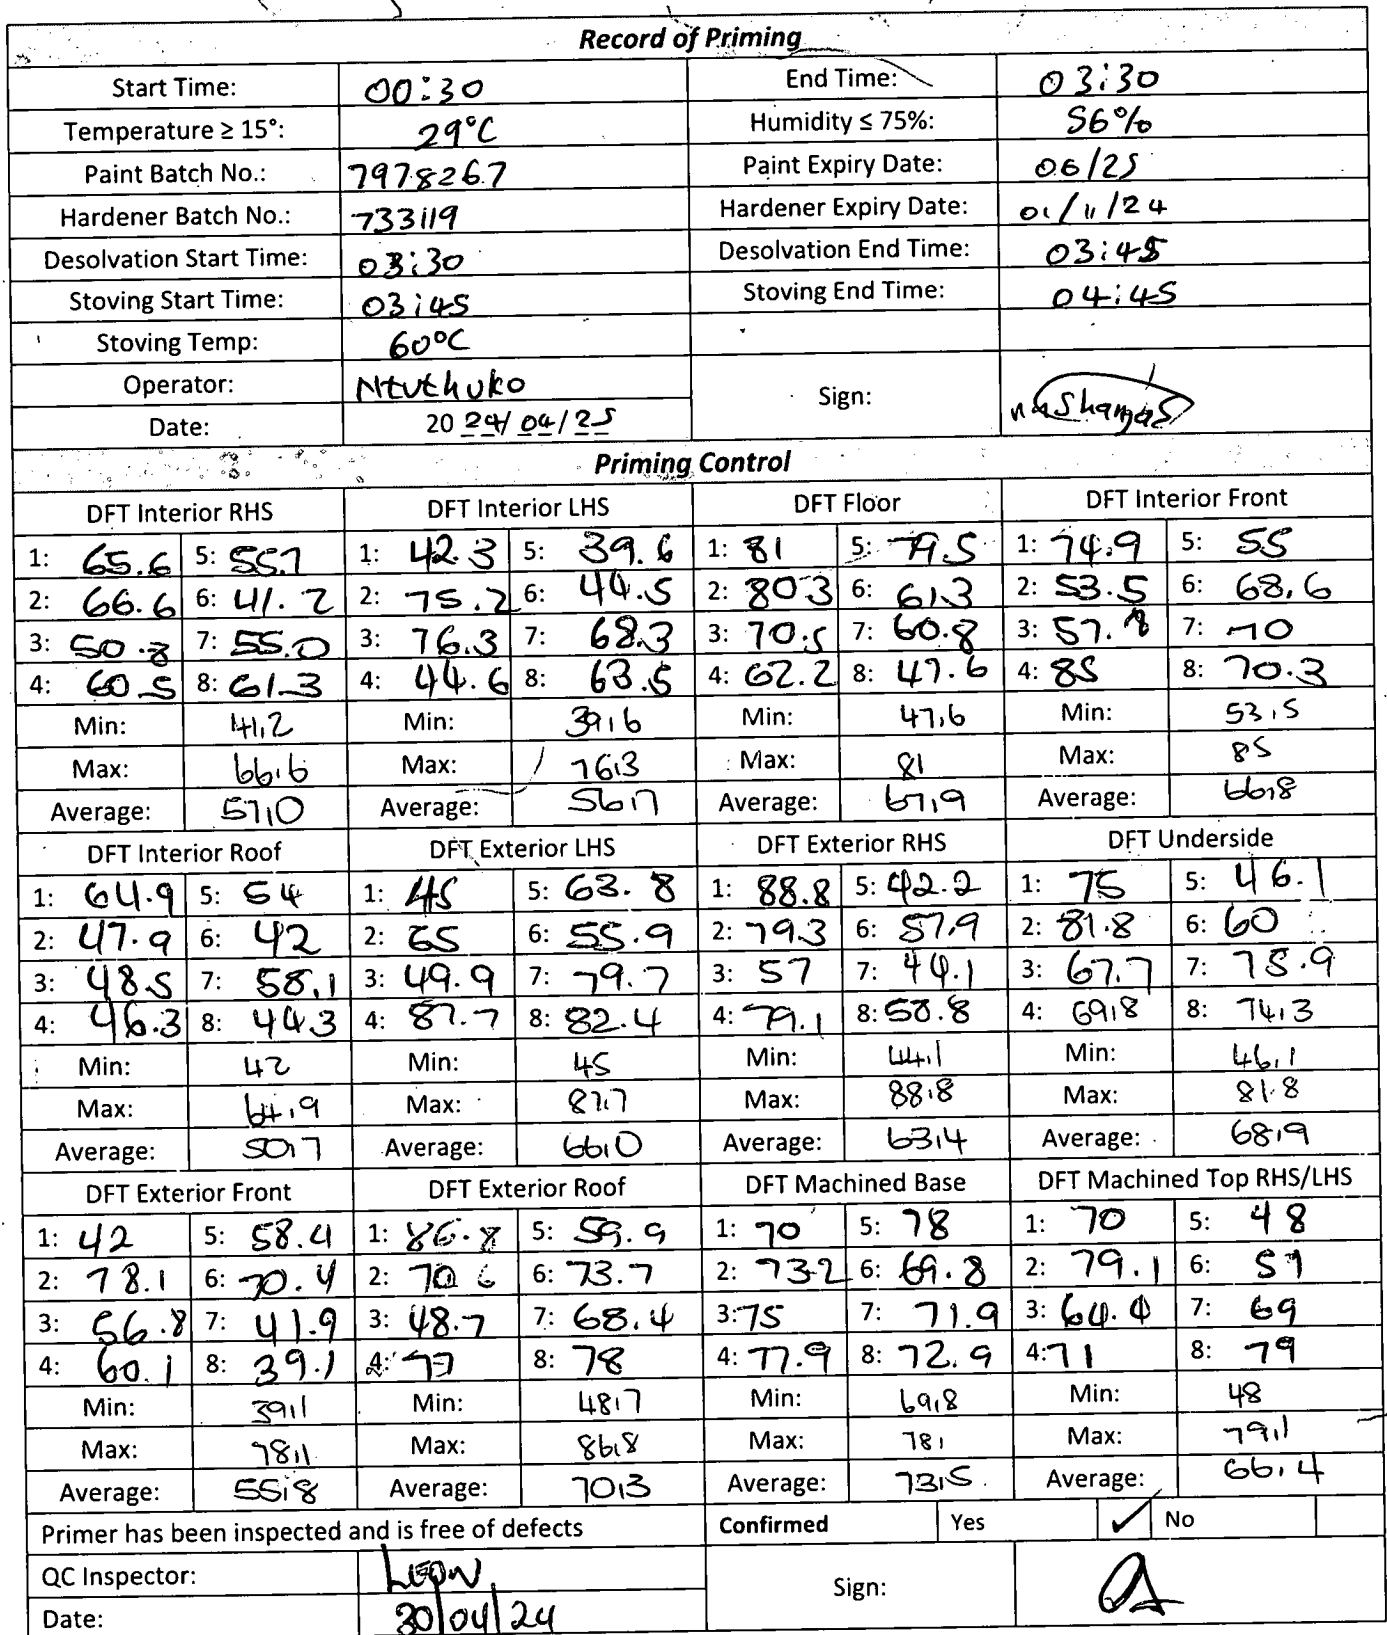 Record of Priming
Start Time: 00:30 End Time: 03:30
Temperature ≥ 15°: 29°C Humidity ≤ 75%: 56%
Paint Batch No.: 7978267 Paint Expiry Date: 06/25
Hardener Batch No.: 733119 Hardener Expiry Date: 01/11/24
Desolvation Start Time: 03:30 Desolvation End Time: 03:45
Stoving Start Time: 03:45 Stoving End Time: 04:45
Stoving Temp: 60°C
Operator: Ntuthuko Sign:
Date: 2024/04/25
Priming Control
DFT Interior RHS DFT Interior LHS DFT Floor DFT Interior Front
1: 65.6 5: 55.7 1: 42.3 5: 39.6 1: 81 5: 79.5 1: 74.9 5: 55
2: 66.6 6: 41.2 2: 75.2 6: 44.5 2: 80.3 6: 61.3 2: 53.5 6: 68.6
3: 50.8 7: 55.0 3: 76.3 7: 68.3 3: 70.5 7: 60.8 3: 57.8 7: 70
4: 60.5 8: 61.3 4: 44.6 8: 63.5 4: 62.2 8: 47.6 4: 85 8: 70.3
Min: 41,2 Min: 39,6 Min: 47,6 Min: 53,5
Max: 66,6 Max: 76,3 Max: 81 Max: 85
Average: 57,0 Average: 56,7 Average: 67,9 Average: 66,8
DFT Interior Roof DFT Exterior LHS DFT Exterior RHS DFT Underside
1: 64.9 5: 54 1: 45 5: 63.8 1: 88.8 5: 42.2 1: 75 5: 46.1
2: 47.9 6: 42 2: 65 6: 55.9 2: 79.3 6: 57.9 2: 81.8 6: 60
3: 48.5 7: 58.1 3: 49.9 7: 79.7 3: 57 7: 44.1 3: 67.7 7: 75.9
4: 46.3 8: 44.3 4: 87.7 8: 82.4 4: 79.1 8: 58.8 4: 69,8 8: 74,3
Min: 42 Min: 45 Min: 44,1 Min: 46,1
Max: 64,9 Max: 87,7 Max: 88,8 Max: 81.8
Average: 50,7 Average: 66,0 Average: 63,4 Average: 68,9
DFT Exterior Front DFT Exterior Roof DFT Machined Base DFT Machined Top RHS/LHS
1: 42 5: 58.4 1: 86.8 5: 59.9 1: 70 5: 78 1: 70 5: 48
2: 78.1 6: 70.4 2: 70.6 6: 73.7 2: 73.2 6: 69.8 2: 79.1 6: 51
3: 56.8 7: 41.9 3: 48.7 7: 68.4 3: 75 7: 71.9 3: 64.4 7: 69
4: 60.1 8: 39.1 4: 77 8: 78 4: 77.9 8: 72.9 4: 71 8: 79
Min: 39,1 Min: 48,7 Min: 69,8 Min: 48
Max: 78,1 Max: 86,8 Max: 78, Max: 79,1
Average: 55,8 Average: 70,3 Average: 73,5 Average: 66,4
Primer has been inspected and is free of defects Confirmed Yes ✓ No
QC Inspector: Leon Sign:
Date: 30/04/24